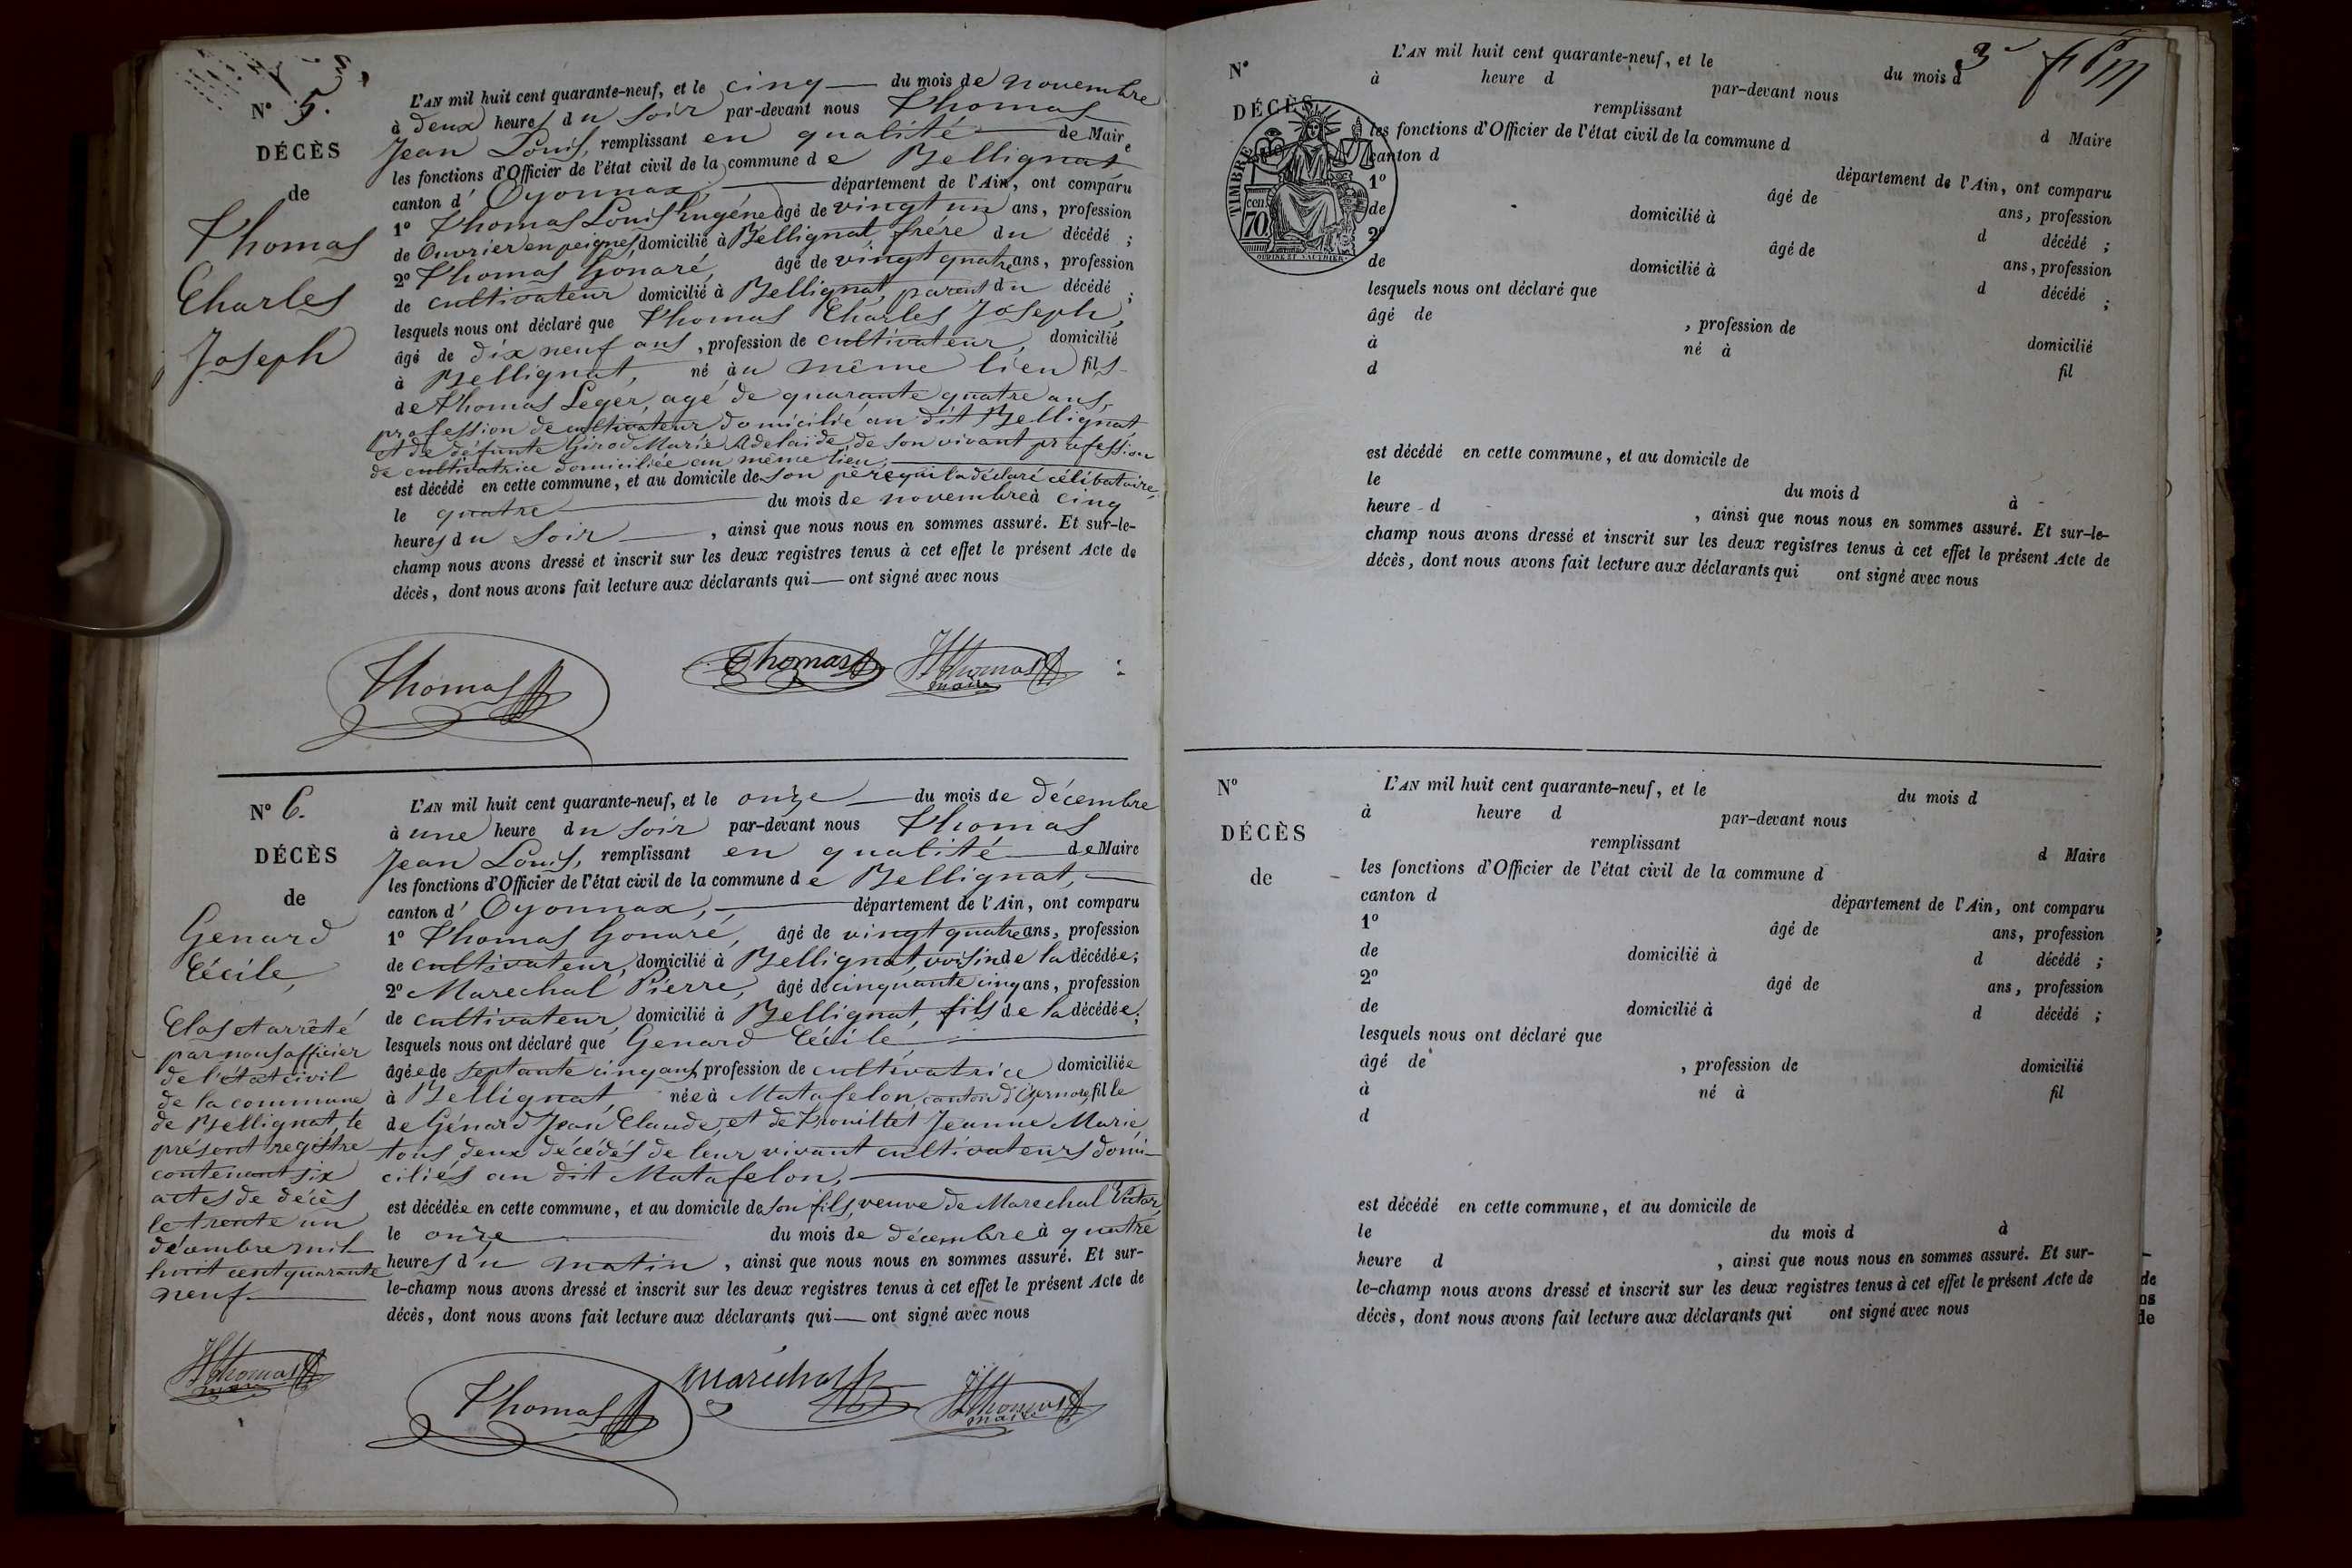 N° 5.
DÉCÈS
de
Thomas
Charles
Joseph
L'AN mil huit cent quarante-neuf, et le cinq du mois de novembre
à deux heures du soir par-devant nous Thomas
Jean Louis, remplissant en qualité de Maire
les fonctions d'Officier de l'état civil de la commune de Bellignat
canton d'Oyonnax, département de l'Ain, ont comparu
1° Thomas Louis Eugéne âgé de vingt un ans, profession
de Ouvrier en peignes, domicilié à Bellignat, frére du décédé ;
2° Thomas Gonaré, âgé de vingt quatre ans, profession
de cultivateur domicilié à Bellignat, parent du décédé ;
lesquels nous ont déclaré que Thomas Charles Joseph,
âgé de dix neuf ans, profession de cultivateur, domicilié
à Bellignat, né au même lieu fils
de Thomas Leger, agé de quarante quatre ans,
profession de cultivateur domicilié au dit Bellignat
et de défunte Girod Marie Adelaide, de son vivant profession
de cultivatrice domiciliée au même lieu,
est décédé en cette commune, et au domicile de son père qui l'a déclaré célibataire,
le quatre du mois de novembre à cinq
heures du soir, ainsi que nous nous en sommes assuré. Et sur-le-
champ nous avons dressé et inscrit sur les deux registres tenus à cet effet le présent Acte de
décès, dont nous avons fait lecture aux déclarants qui ont signé avec nous
Thomas Thomas Thomas
maire
N° 6.
DÉCÈS
de
Genard
Cécile,
L'AN mil huit cent quarante-neuf, et le onze du mois de décembre
à une heure du soir par-devant nous Thomas
Jean Louis, remplissant en qualité de Maire
les fonctions d'Officier de l'état civil de la commune de Bellignat,
canton d'Oyonnax, département de l'Ain, ont comparu
1° Thomas Gonaré, âgé de vingt quatre ans, profession
de cultivateur, domicilié à Bellignat, voisin de la décédée ;
2° Marechal Pierre, âgé de cinquante cinq ans, profession
de cultivateur, domicilié à Bellignat, fils de la décédée ;
lesquels nous ont déclaré que Genard Cécile,
âgée de septante cinq ans, profession de cultivatrice domiciliée
à Bellignat, née à Matafelon, canton d'Izernore, fille
de Génard Jean Claude, et de Trouillet Jeanne Marie
tous deux décédés de leur vivant cultivateurs domi-
ciliés au dit Matafelon,
est décédée en cette commune, et au domicile de son fils, veuve de Marechal Victor,
le onze du mois de décembre à quatre
heures du matin, ainsi que nous nous en sommes assuré. Et sur-
le-champ nous avons dressé et inscrit sur les deux registres tenus à cet effet le présent Acte de
décès, dont nous avons fait lecture aux déclarants qui ont signé avec nous
Clos et arrêté
par nous officier
de l'état civil
de la commune
de Bellignat, le
présent registre
contenant six
actes de décès
le trente un
décembre mil
huit cent quarante
neuf
Thomas
maire
Thomas Maréchal Thomas
maire
N°
DÉCÈS
TIMBRE
70
cen.
3
L'AN mil huit cent quarante-neuf, et le du mois d
à heure d par-devant nous
remplissant d Maire
les fonctions d'Officier de l'état civil de la commune d
canton d département de l'Ain, ont comparu
1° âgé de ans, profession
de domicilié à d décédé ;
2° âgé de ans, profession
de domicilié à d décédé ;
lesquels nous ont déclaré que
âgé de , profession de domicilié
à né à fil
d
est décédé en cette commune, et au domicile de
le du mois d à
heure d , ainsi que nous nous en sommes assuré. Et sur-le-
champ nous avons dressé et inscrit sur les deux registres tenus à cet effet le présent Acte de
décès, dont nous avons fait lecture aux déclarants qui ont signé avec nous
N°
DÉCÈS
de
L'AN mil huit cent quarante-neuf, et le du mois d
à heure d par-devant nous
remplissant d Maire
les fonctions d'Officier de l'état civil de la commune d
canton d département de l'Ain, ont comparu
1° âgé de ans, profession
de domicilié à d décédé ;
2° âgé de ans, profession
de domicilié à d décédé ;
lesquels nous ont déclaré que
âgé de , profession de domicilié
à né à fil
d
est décédé en cette commune, et au domicile de
le du mois d à
heure d , ainsi que nous nous en sommes assuré. Et sur-
le-champ nous avons dressé et inscrit sur les deux registres tenus à cet effet le présent Acte de
décès, dont nous avons fait lecture aux déclarants qui ont signé avec nous